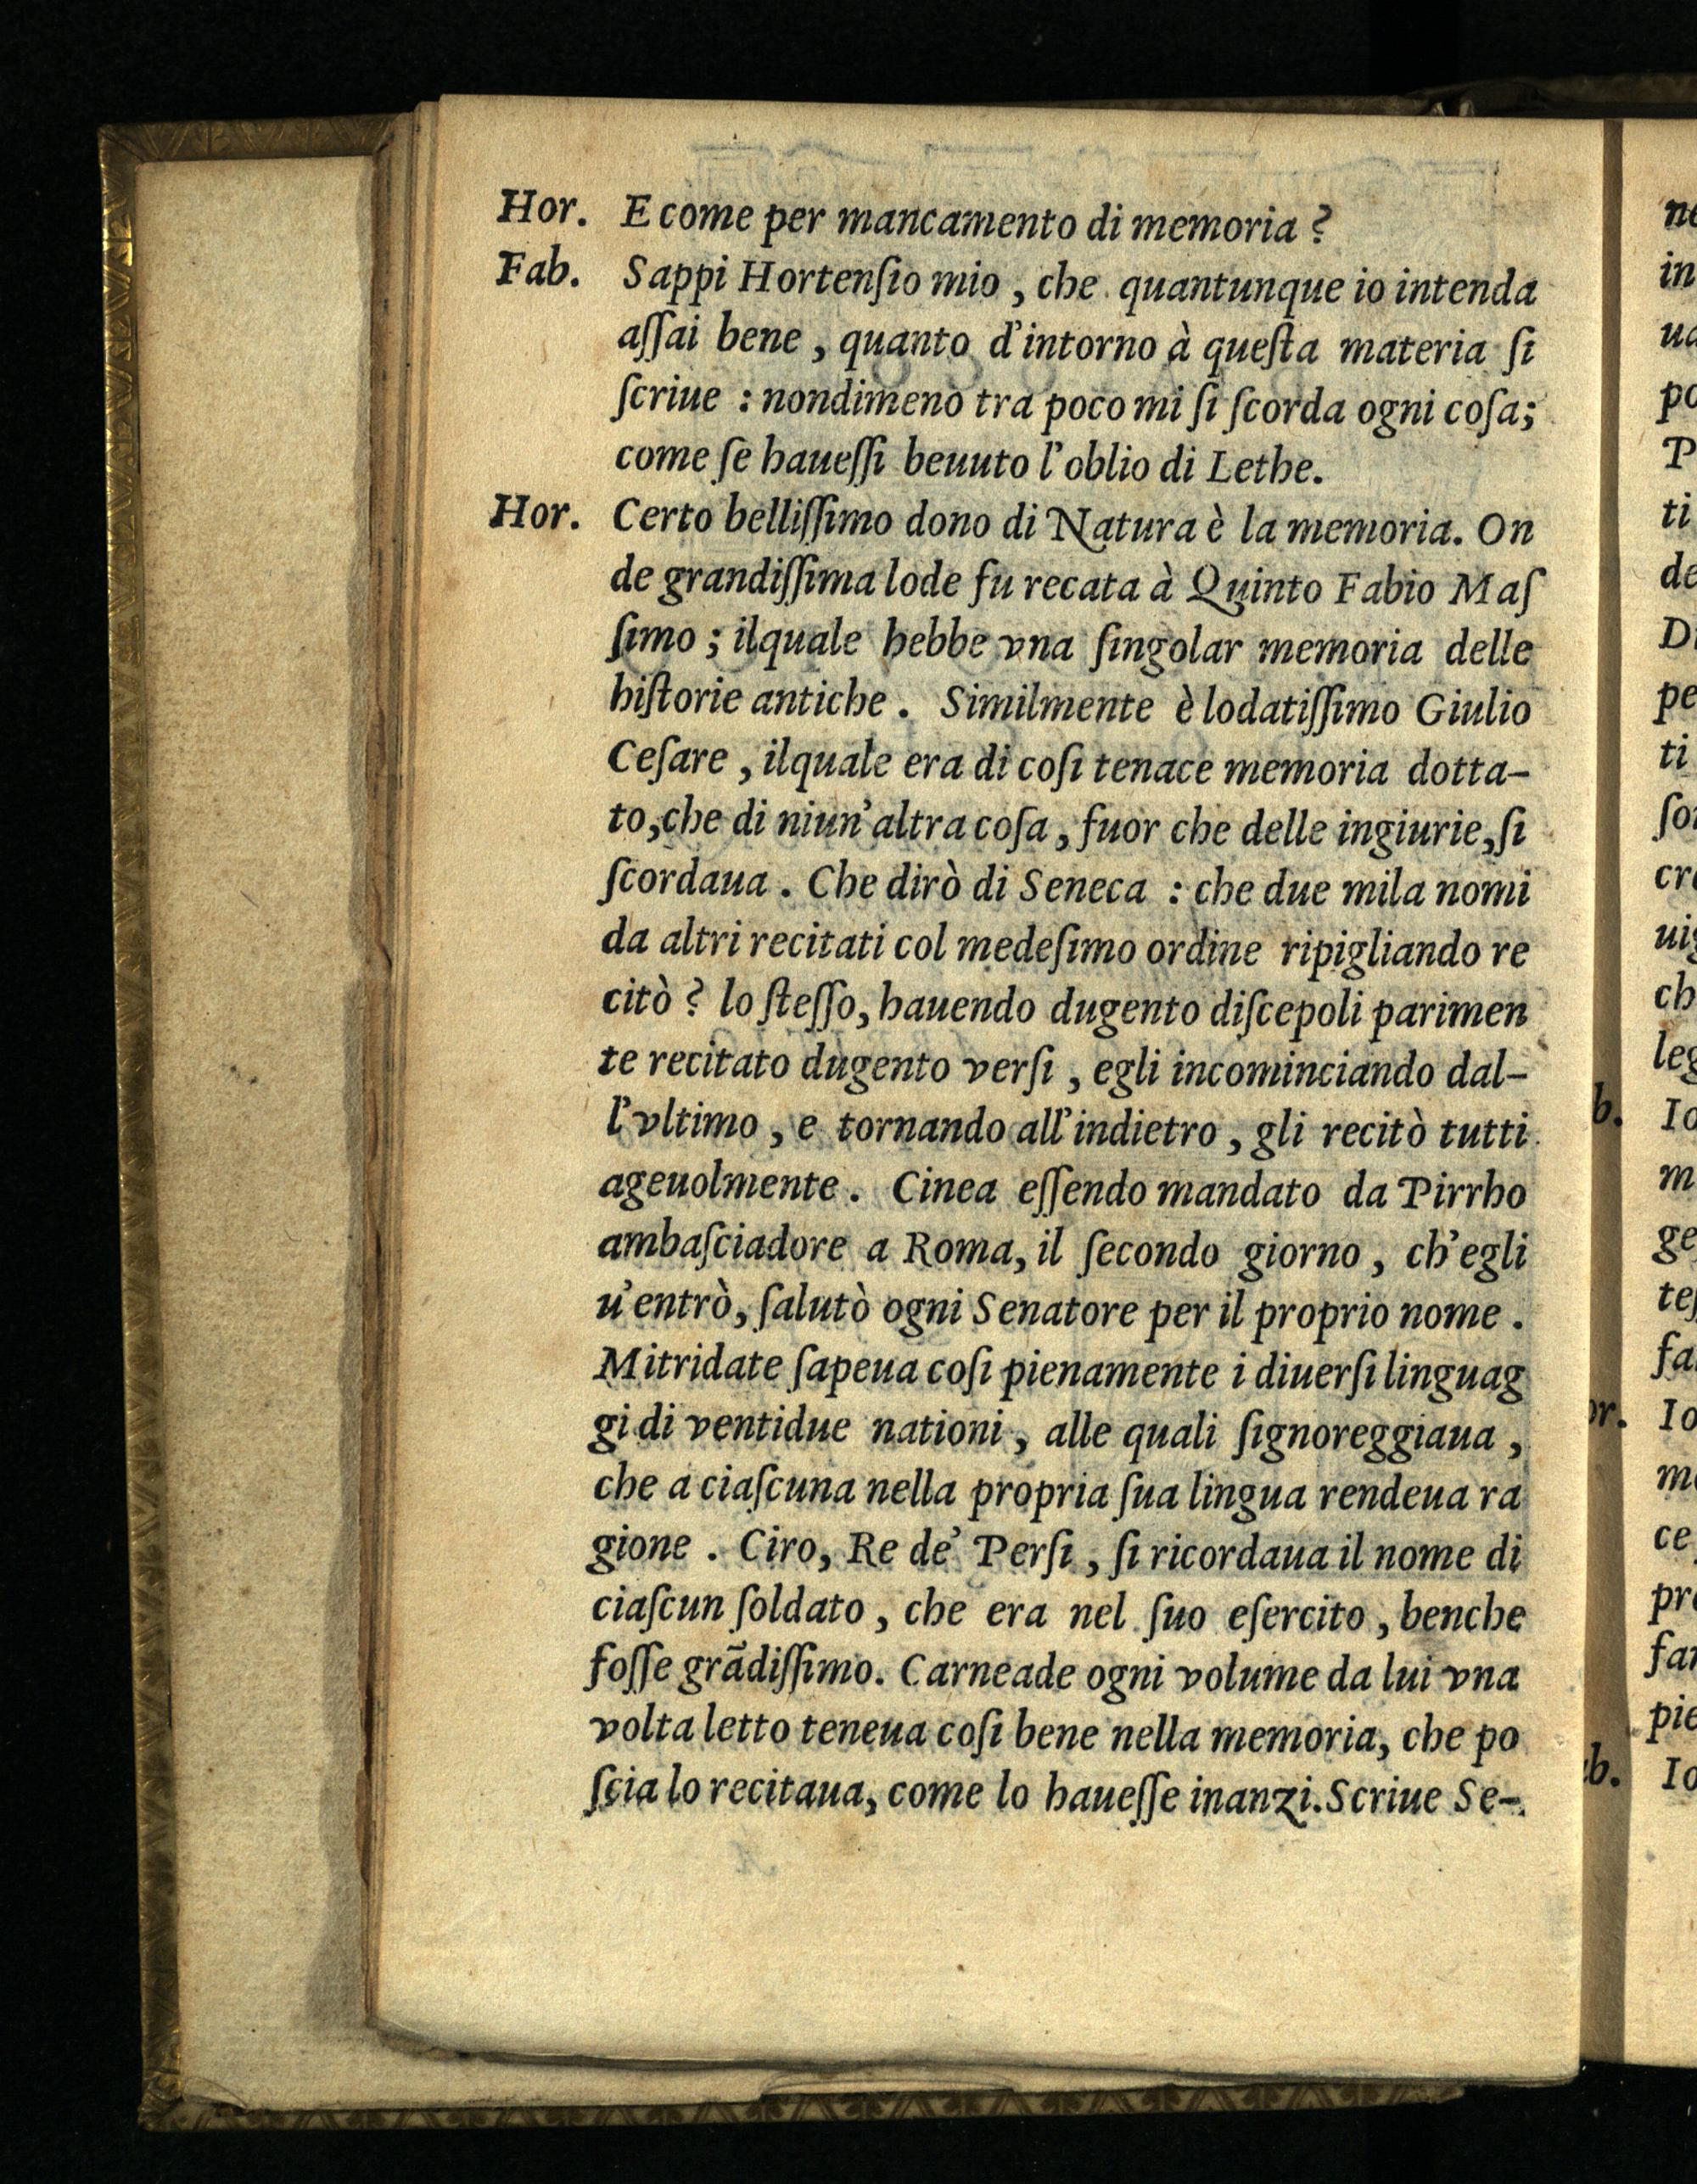 Hor. E come per mancamento di memoria ?
Fab. Sappi Hortenſio mio , che quantunque io intenda
aſſai bene , quanto d'intorno à queſta materia ſi
ſcriue : nondimeno tra poco mi ſi ſcorda ogni coſa;
come ſe haueſſi beuuto l'oblio di Lethe.
Hor. Certo belliſſimo dono di Natura è la memoria. On
de grandiſſima lode fu recata à Quinto Fabio Maſ
ſimo ; ilquale hebbe vna ſingolar memoria delle
hiſtorie antiche . Similmente è lodatiſſimo Giulio
Ceſare , ilquale era di coſi tenace memoria dotta-
to,che di niun'altra coſa , fuor che delle ingiurie,ſi
ſcordaua . Che dirò di Seneca : che due mila nomi
da altri recitati col medeſimo ordine ripigliando re
citò ? lo ſteſſo, hauendo dugento diſcepoli parimen
te recitato dugento verſi , egli incominciando dal-
l'vltimo , e tornando all'indietro , gli recitò tutti
ageuolmente . Cinea eſſendo mandato da Pirrho
ambaſciadore a Roma, il ſecondo giorno , ch'egli
u'entrò, ſalutò ogni Senatore per il proprio nome .
Mitridate ſapeua coſi pienamente i diuerſi linguag
gi di ventidue nationi , alle quali ſignoreggiaua ,
che a ciaſcuna nella propria ſua lingua rendeua ra
gione . Ciro, Re de' Perſi , ſi ricordaua il nome di
ciaſcun ſoldato , che era nel ſuo eſercito , benche
foſſe grãdiſſimo. Carneade ogni volume da lui vna
volta letto teneua coſi bene nella memoria, che po
ſcia lo recitaua, come lo haueſſe inanzi.Scriue Se-